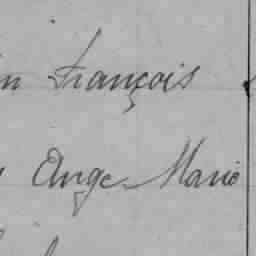 François
Ange Marie